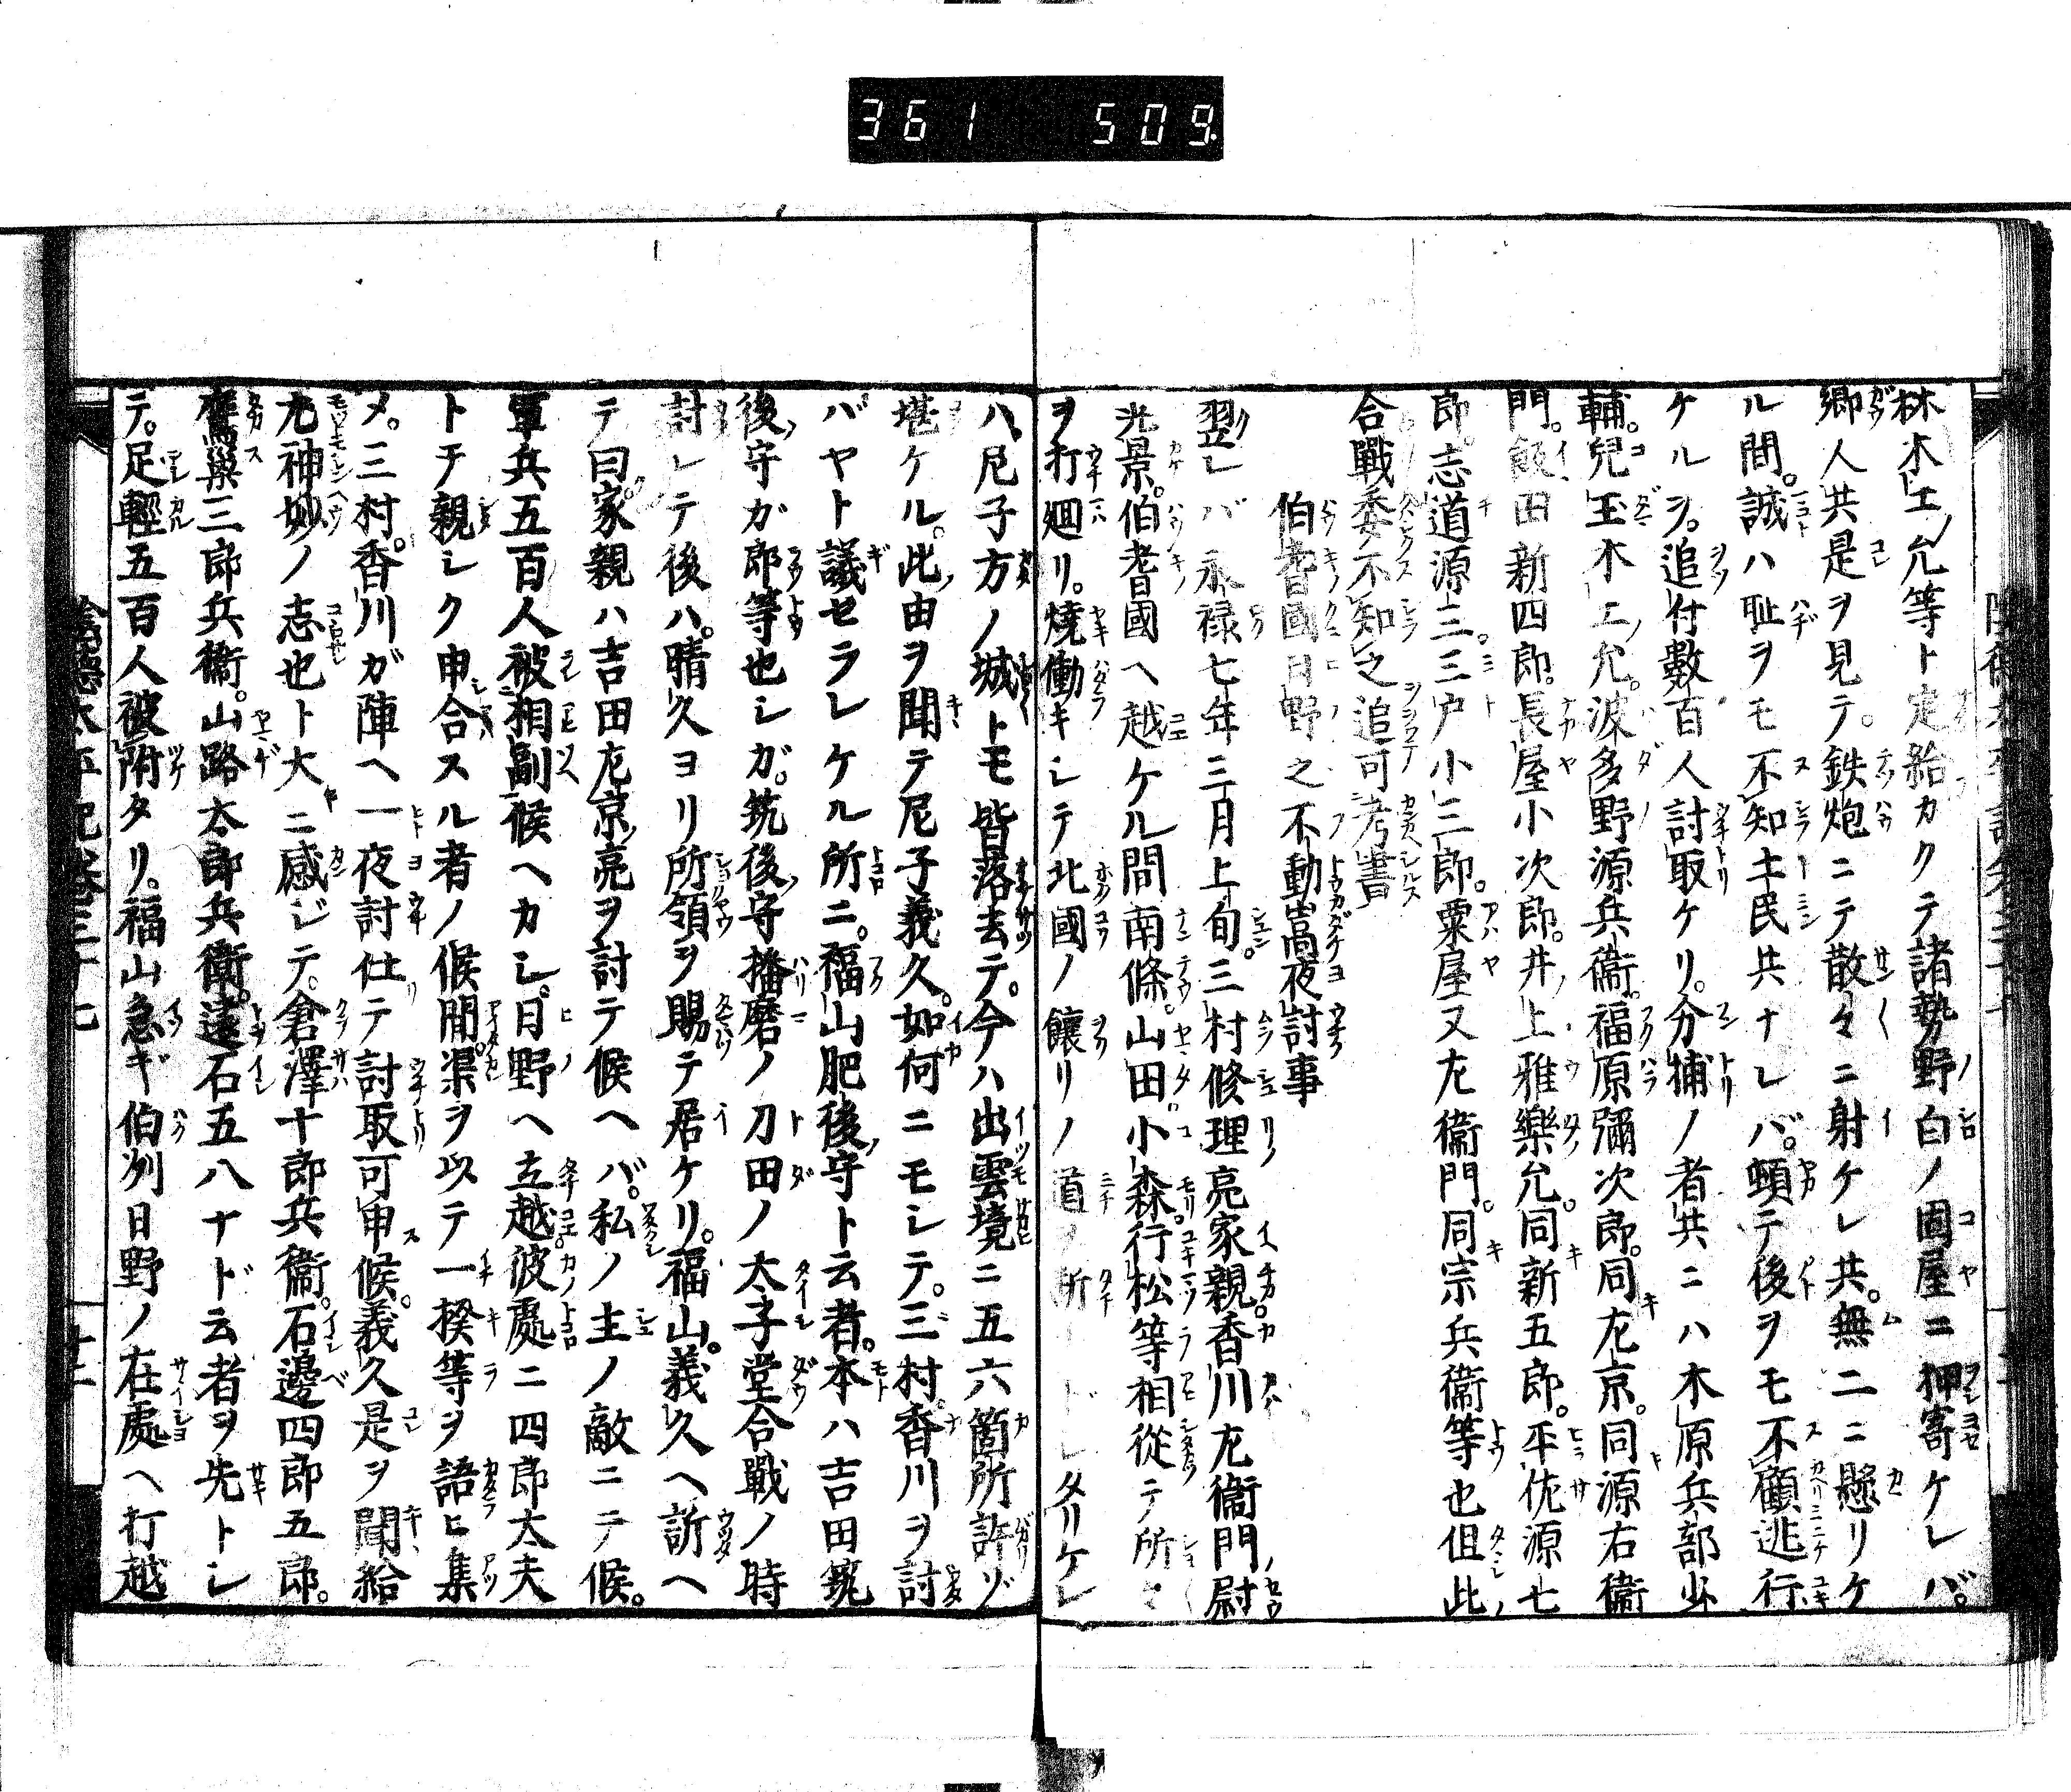 361 509
林木工允等ト定給カクテ諸勢野白ノ固屋ニ押寄ケレバ。
郷人共是ヲ見テ。鉄炮ニテ散々ニ射ケレ共。無二ニ懸リケ
ル間。誠ハ耻ヲモ不知土民共ナレバ。頓テ後ヲモ不顧逃行
ケルヲ。追付数百人討取ケリ。分捕ノ者共ニハ木原兵部少
輔。兒玉木工允。波多野源兵衞。福原彌次郎。同左京。同源右衞
門。飯田新四郎。長屋小次郎。井上雅樂允。同新五郎。平佐源七
郎。志道源三。三戸小三郎。粟屋又左衞門。同宗兵衞等也但此
合戰委不知之追可考書
伯耆國日野之不動嵩夜討事
翌レバ永禄七年三月上旬。三村修理亮家親。香川左衞門尉
光景。伯耆國ヘ越ケル間南條。山田小森。行松等相從テ所々
ヲ打廻リ。燒働キシテ北國ノ饟リノ道 所 レタリケレ
ハ。尼子方ノ城トモ皆落去テ。今ハ出雲境ニ五六箇所許ゾ
堪ケル。此由ヲ聞テ尼子義久。如何ニモシテ。三村。香川ヲ討
バヤト議セラレケル所ニ。福山肥後守ト云者。本ハ吉田筑
後守ガ郎等也シガ。筑後守播磨ノ刀田ノ太子堂合戰ノ時
討レテ後ハ。晴久ヨリ所領ヲ賜テ居ケリ。福山。義久ヘ訴ヘ
テ曰家親ハ吉田左京亮ヲ討テ候ヘバ。私ノ主ノ敵ニテ候。
軍兵五百人被相副候ヘカシ。日野ヘ立越。彼處ニ四郎太夫
トテ親シク申合スル者ノ候間。渠ヲ以テ一揆等ヲ語ヒ集
メ。三村。香川ガ陣ヘ一夜討仕テ討取可申候。義久是ヲ聞給
尤神妙ノ志也ト大ニ感ジテ。倉澤十郎兵衞。石邊四郎五郎。
鷹巣三郎兵衞。山路太郎兵衞。遠石五八ナド云者ヲ先トシ
テ。足輕五百人被附タリ。福山急ギ伯州日野ノ在處ヘ打越